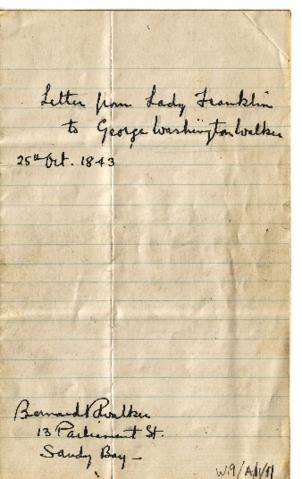 Letter from Lady Franklin
to George Washington Walker
25th Oct. 1843
Bernard Walker
13 Parliament St.
Sandy Bay —
W.9/A1/11